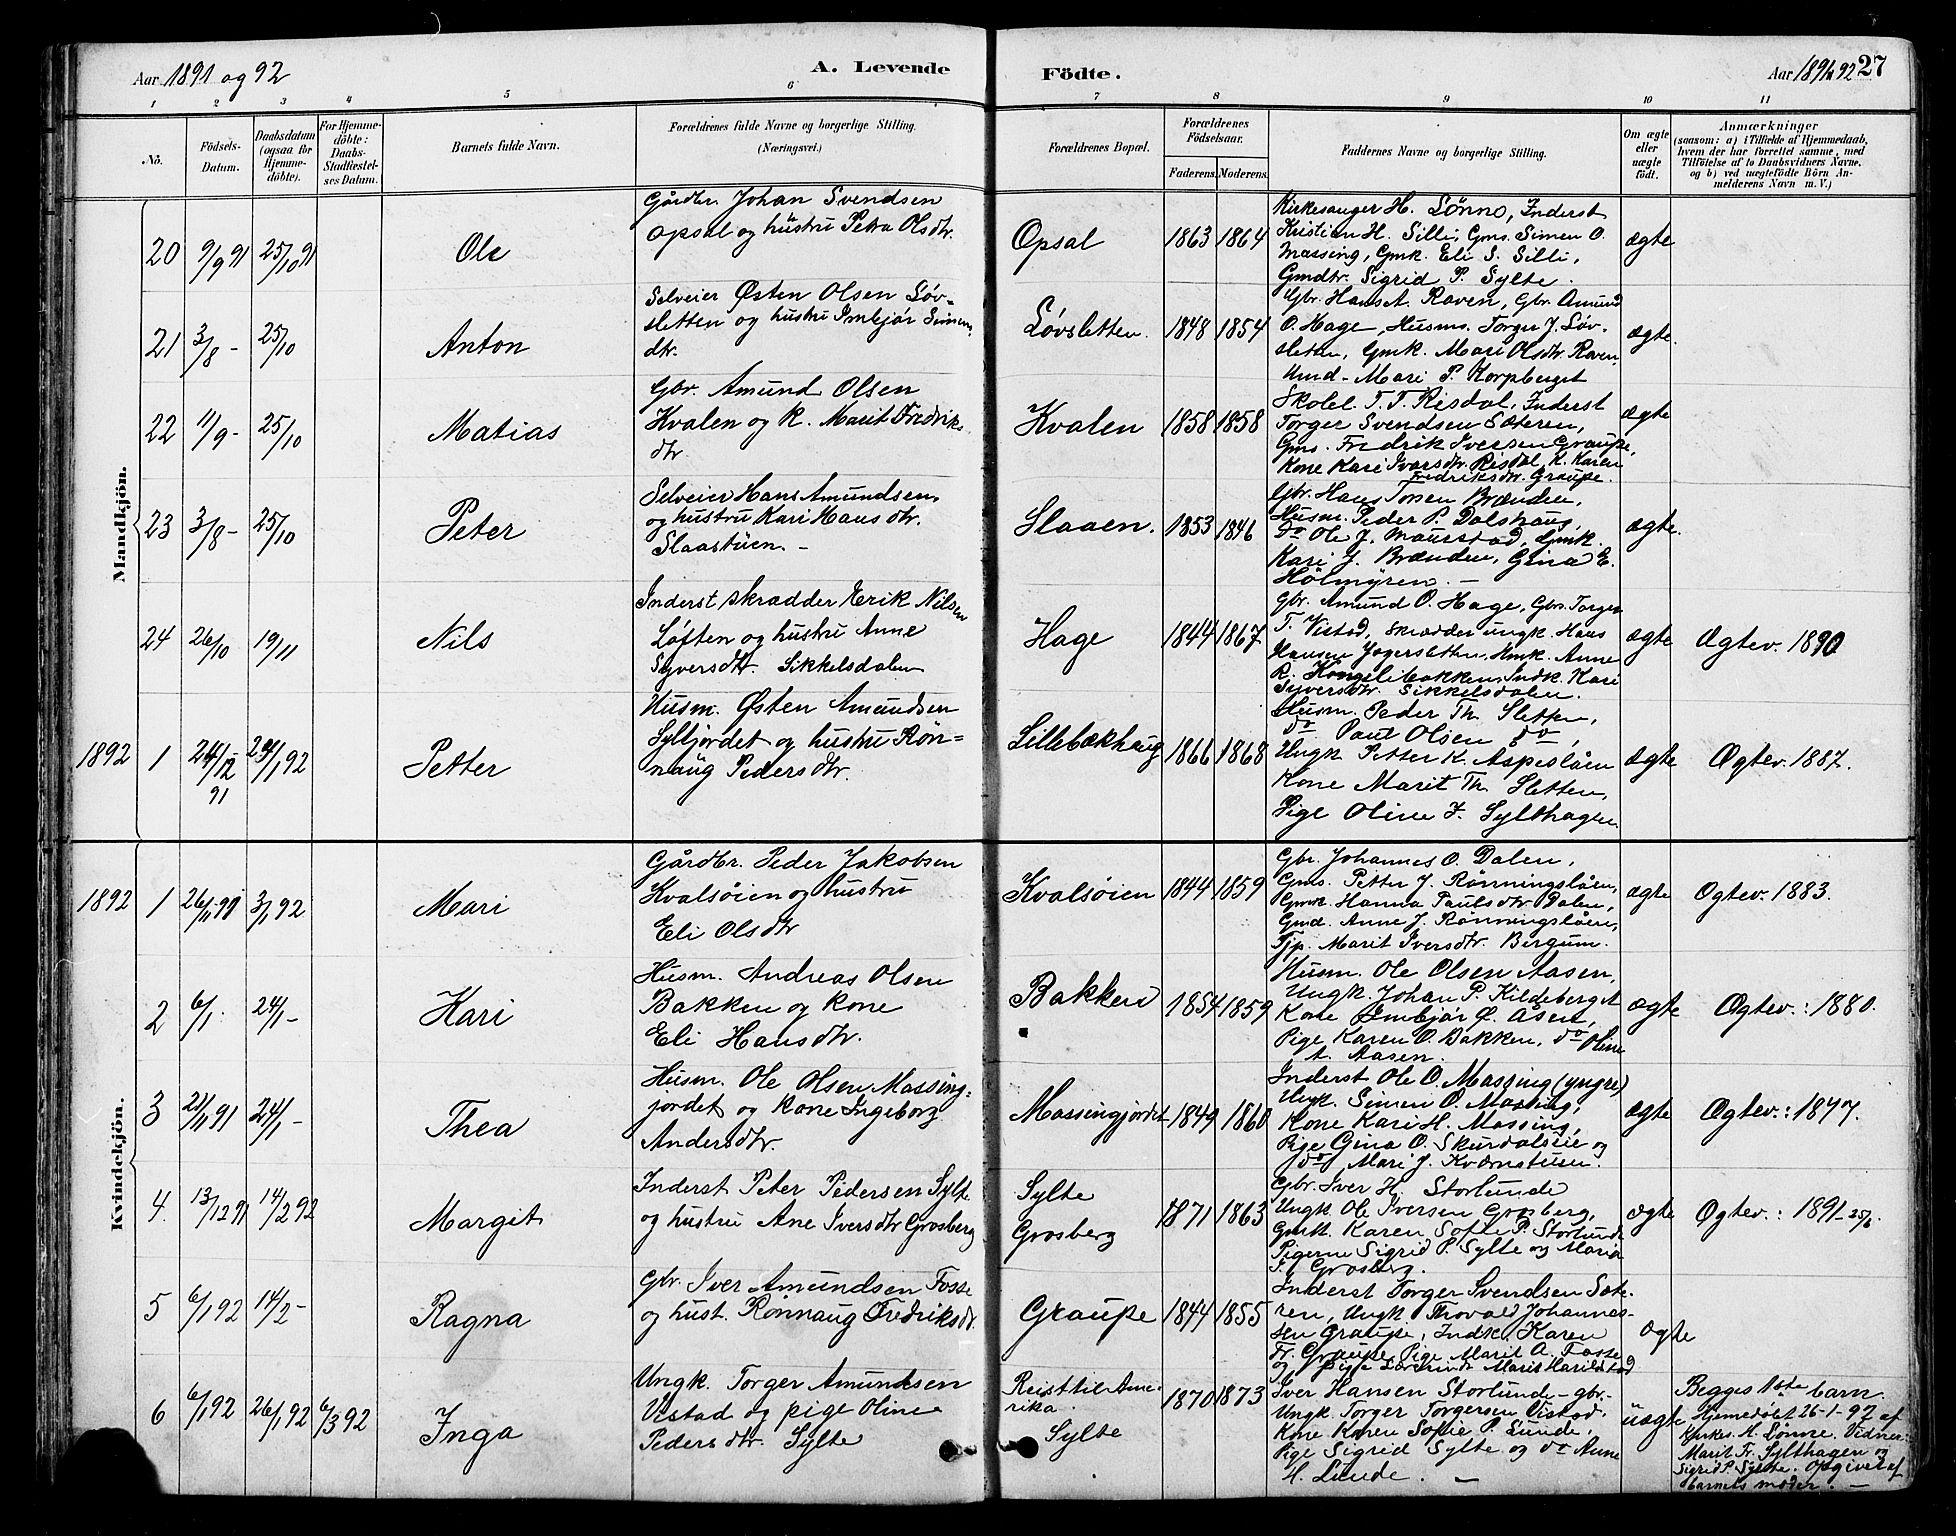 Aar 1891 og 92
A. Levende
Födte.
Aar 1891 92 27
1 2 3 4 5 6 7 8 9 10 11
No.
Födsels-
Datum.
Daabsdatum
(ogsaa for
Hjemme-
döbte).
For Hjemme-
döbte:
Daabs-
Stadfæstel-
ses Datum.
Barnets fulde Navn.
Forældrenes fulde Navne og borgerlige Stilling.
(Næringsvei.)
Forældrenes Bopæl.
Forældrenes
Födselsaar.
Faderens. Moderens.
Faddernes Navne og borgerlige Stilling.
Om ægte
eller
uægte
födt.
Anmærkninger
(saasom: a) i Tilfælde af Hjemmedaab,
hvem der har forrettet samme, med
Tilföielse af to Daabsvidners Navne.
og b) ved uægtefödte Börn An-
melderens Navn m. V.)
Mandkjön.
20 9/9 91 25/10 91 Ole
Gårdbr. Johan Svendsen
Opsal og hustru Petra Olsdtr.
Opsal 1863 1864
Kirkesanger H. Lönne, Inderst
Kristian H. Silli, Gms. Simen O.
Massing, Gmk. Eli S. Silli,
Gmdtr. Sigrid P. Sylte.
ægte
21 3/8 - 25/10 Anton
Selveier Østen Olsen Løv-
sletten og hustru Imbjør Simens
dtr.
Løvsletten. 1848 1854
Gbr. Hans A. Raven, Gbr. Amund
O. Hage, Husms. Torger J. Løv-
sletten, Gmk. Mari Olsdtr. Raven
Mari P. Korpberget
ægte.
22 11/9 - 25/10 Matias
Gbr. Amund Olsen
Kvalen og K. Marit Fredriks
dtr.
Kvalen 1858 1858
Skolel. T. T. Risdal, Inderst
Torger Svendsen Sæteren,
Gms. Fredrik Iversen Graupe,
Kone Kari Ivarsdtr. Risdal, K. Karen
Fredriksdtr. Graupe.
ægte
23 3/8 - 25/10 Peter
Selveier Hans Amundsen
og hustru Kari Hansdtr.
Slaastuen. -
Slaaen. 1853 1846
Gbr. Hans Brænden,
Husm. Peder P. Dalshaug,
Do Ole J. Maurstad, Gmk.
Kari J. Brænden, Gina E.
Holmyren. -
ægte.
24 26/10 19/11 Nils
Inderst skrædder Erik Nilsen
Løften og hustru Anne
Syversdtr. Sikkelsdalen
Hage 1844 1867
Gbr. Amund O. Hage, Gbr. Torger
T. Vistad, Skrædder ungk. Hans
Hansen Jogersletten, Hmk. Anne
R. Kongelibakken, Indk. Kari
Syversdtr. Sikkelsdalen.
ægte Ægtev. 1890
1892 1 24/12 91 24/1 92 Petter
Husm. Østen Amundsen
Syltjordet og hustru Røn-
naug Pedersdtr.
Lillebækhaug 1866 1868
Husm. Peder Th. Sletten,
do Paul Olsen do,
Ungk. Petter K. Aspeslåen
Kone Marit Th. Sletten,
Pige Oline J. Sylthagen.
ægte Ægtev. 1887.
Kvindekjön.
1892 1 26/11 91 3/1 92 Mari
Gårdbr. Peder Jakobsen
Kvalsøien og hustru
Eli Olsdtr
Kvalsøien 1844 1859
Gbr. Johannes O. Dalen,
Gms. Petter J. Rønningslåen,
Gmk. Hanna Paulsdtr. Dalen,
Gmd. Anne J. Rønningslåen,
Tjp. Marit Iversdtr. Bergum.
ægte Ægtev. 1883.
2 6/1. 24/1 - Kari
Husm. Andreas Olsen
Bakken og kone
Eli Hansdtr.
Bakken 1854 1859
Husm. Ole Olsen Aasen,
Ungk. Johan P. Kildeberget
Kone Imbjør Ø. Åsen,
Pige Karen O. Bakken, do Oline
A. Aasen.
ægte Ægtev.: 1880.
3 21/11 91 24/1 - Thea
Husm. Ole Olsen Massing-
jordet og kone Ingeborg
Andersdtr.
Massingjordet 1849 1860
Inderst Ole O. Massing (yngre)
Ungk. Simen O. Massing,
Kone Kari H. Massing,
Pige Gina O. Skurdalseie og
do Mari J. Kværnstuen.
ægte Ægtev.: 1877.
4. 13/12 91 14/2 92 Margit
Inderst Peter Pedersen Sylte
og hustru Ane Iversdtr Grosberg
Sylte
Grosberg 1871 1863
Gbr. Iver H. Storlunde
Ungk Ole Iversen Grosberg,
Gmk. Karen Sofie P. Storlunde
Pigerne Sigrid P. Sylte og Maria
I. Grosberg.
ægte Ægtev.: 1891 - 25/6.
5 6/1 92 14/2 - Ragna
Gbr. Iver Amundsen Fosse
og hust. Rønnaug Fredriksdtr.
Graupe 1844 1855
Inderst Torger Svendsen Sæte-
ren, Ungk. Thorvald Johannes-
sen Graupe, Indk. Karen
Fr. Graupe, Pige Marit A. Fosse
og Pige Marit Harildstad
ægte
6 6/1 92 26/1 92 6/3 92 Inga
Ungk. Torger Amundsen
Vistad og pige Oline
Pedersdtr. Sylte
Reist til Ame-
rika.
Sylte 1870 1873
Iver Hansen Storlunde - gbr.-
Ungk. Torger Torgersen Vistad.
Kone Karen Sofie P. Lunde,
Pige Sigrid Sylte og do Anne
H. Lunde. -
uægte
Begges 1ste barn
Hjemedøbt 26-1-92 af
Kirkes. H. Lønne. Vidner:
Marit Fr. Sylthagen og
Sigrid P. Sylte. Opgivet af
barnets moder. -